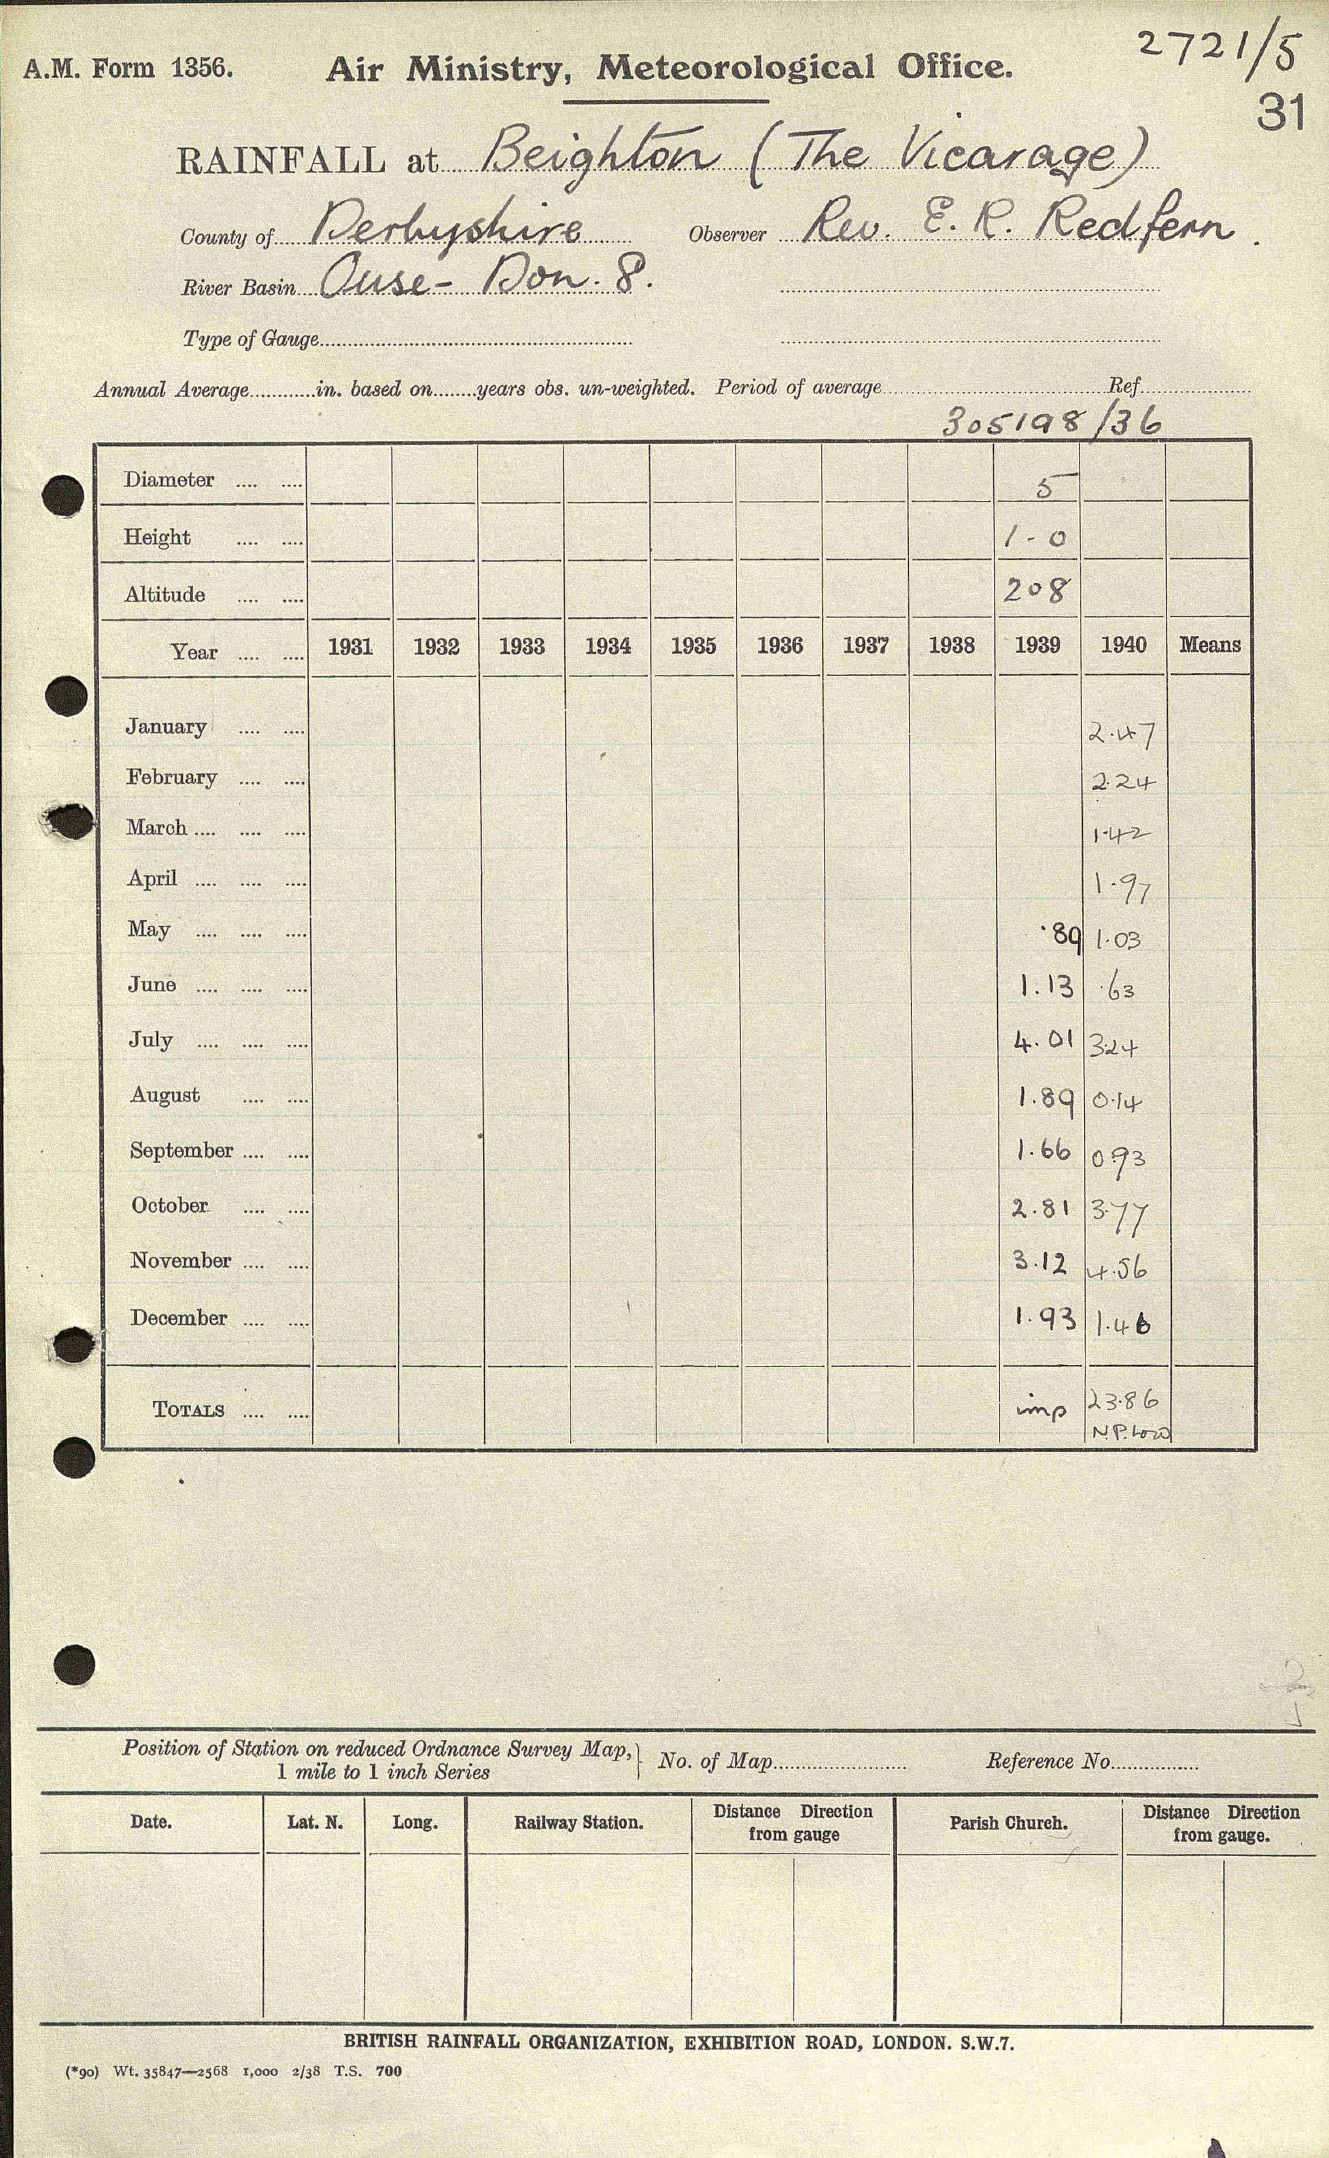 2721/5
A.M. Form 1356. Air Ministry, Meteorological Office.
31
RAINFALL at Beighton (The Vicarage)
County of Derbyshire Observer Rev. E. R. Redfern.
River Basin Ouse - Don. 8.
Type of Gauge
Annual Average in. based on years obs. un-weighted. Period of average Ref
305198/36
Diameter 5
Height 1-0
Altitude 208
Year 1931 1932 1933 1934 1935 1936 1937 1938 1939 1940 Means
January 2.47
February 2.24
March 1.42
April 1.97
May .89 1.03
June 1.13 .63
July 4.01 3.24
August 1.89 0.14
September 1.66 0.93
October 2.81 3.77
November 3.12 4.56
December 1.93 1.46
TOTALS imp 23.86
N.P. low
Position of Station on reduced Ordnance Survey Map,} No. of Map Reference No.
1 mile to 1 inch Series
Date. Lat. N. Long. Railway Station. Distance Direction from gauge Parish Church. Distance Direction from gauge.
BRITISH RAINFALL ORGANIZATION, EXHIBITION ROAD, LONDON. S.W.7.
(*90) Wt. 35847—2568 1,000 2/38 T.S. 700